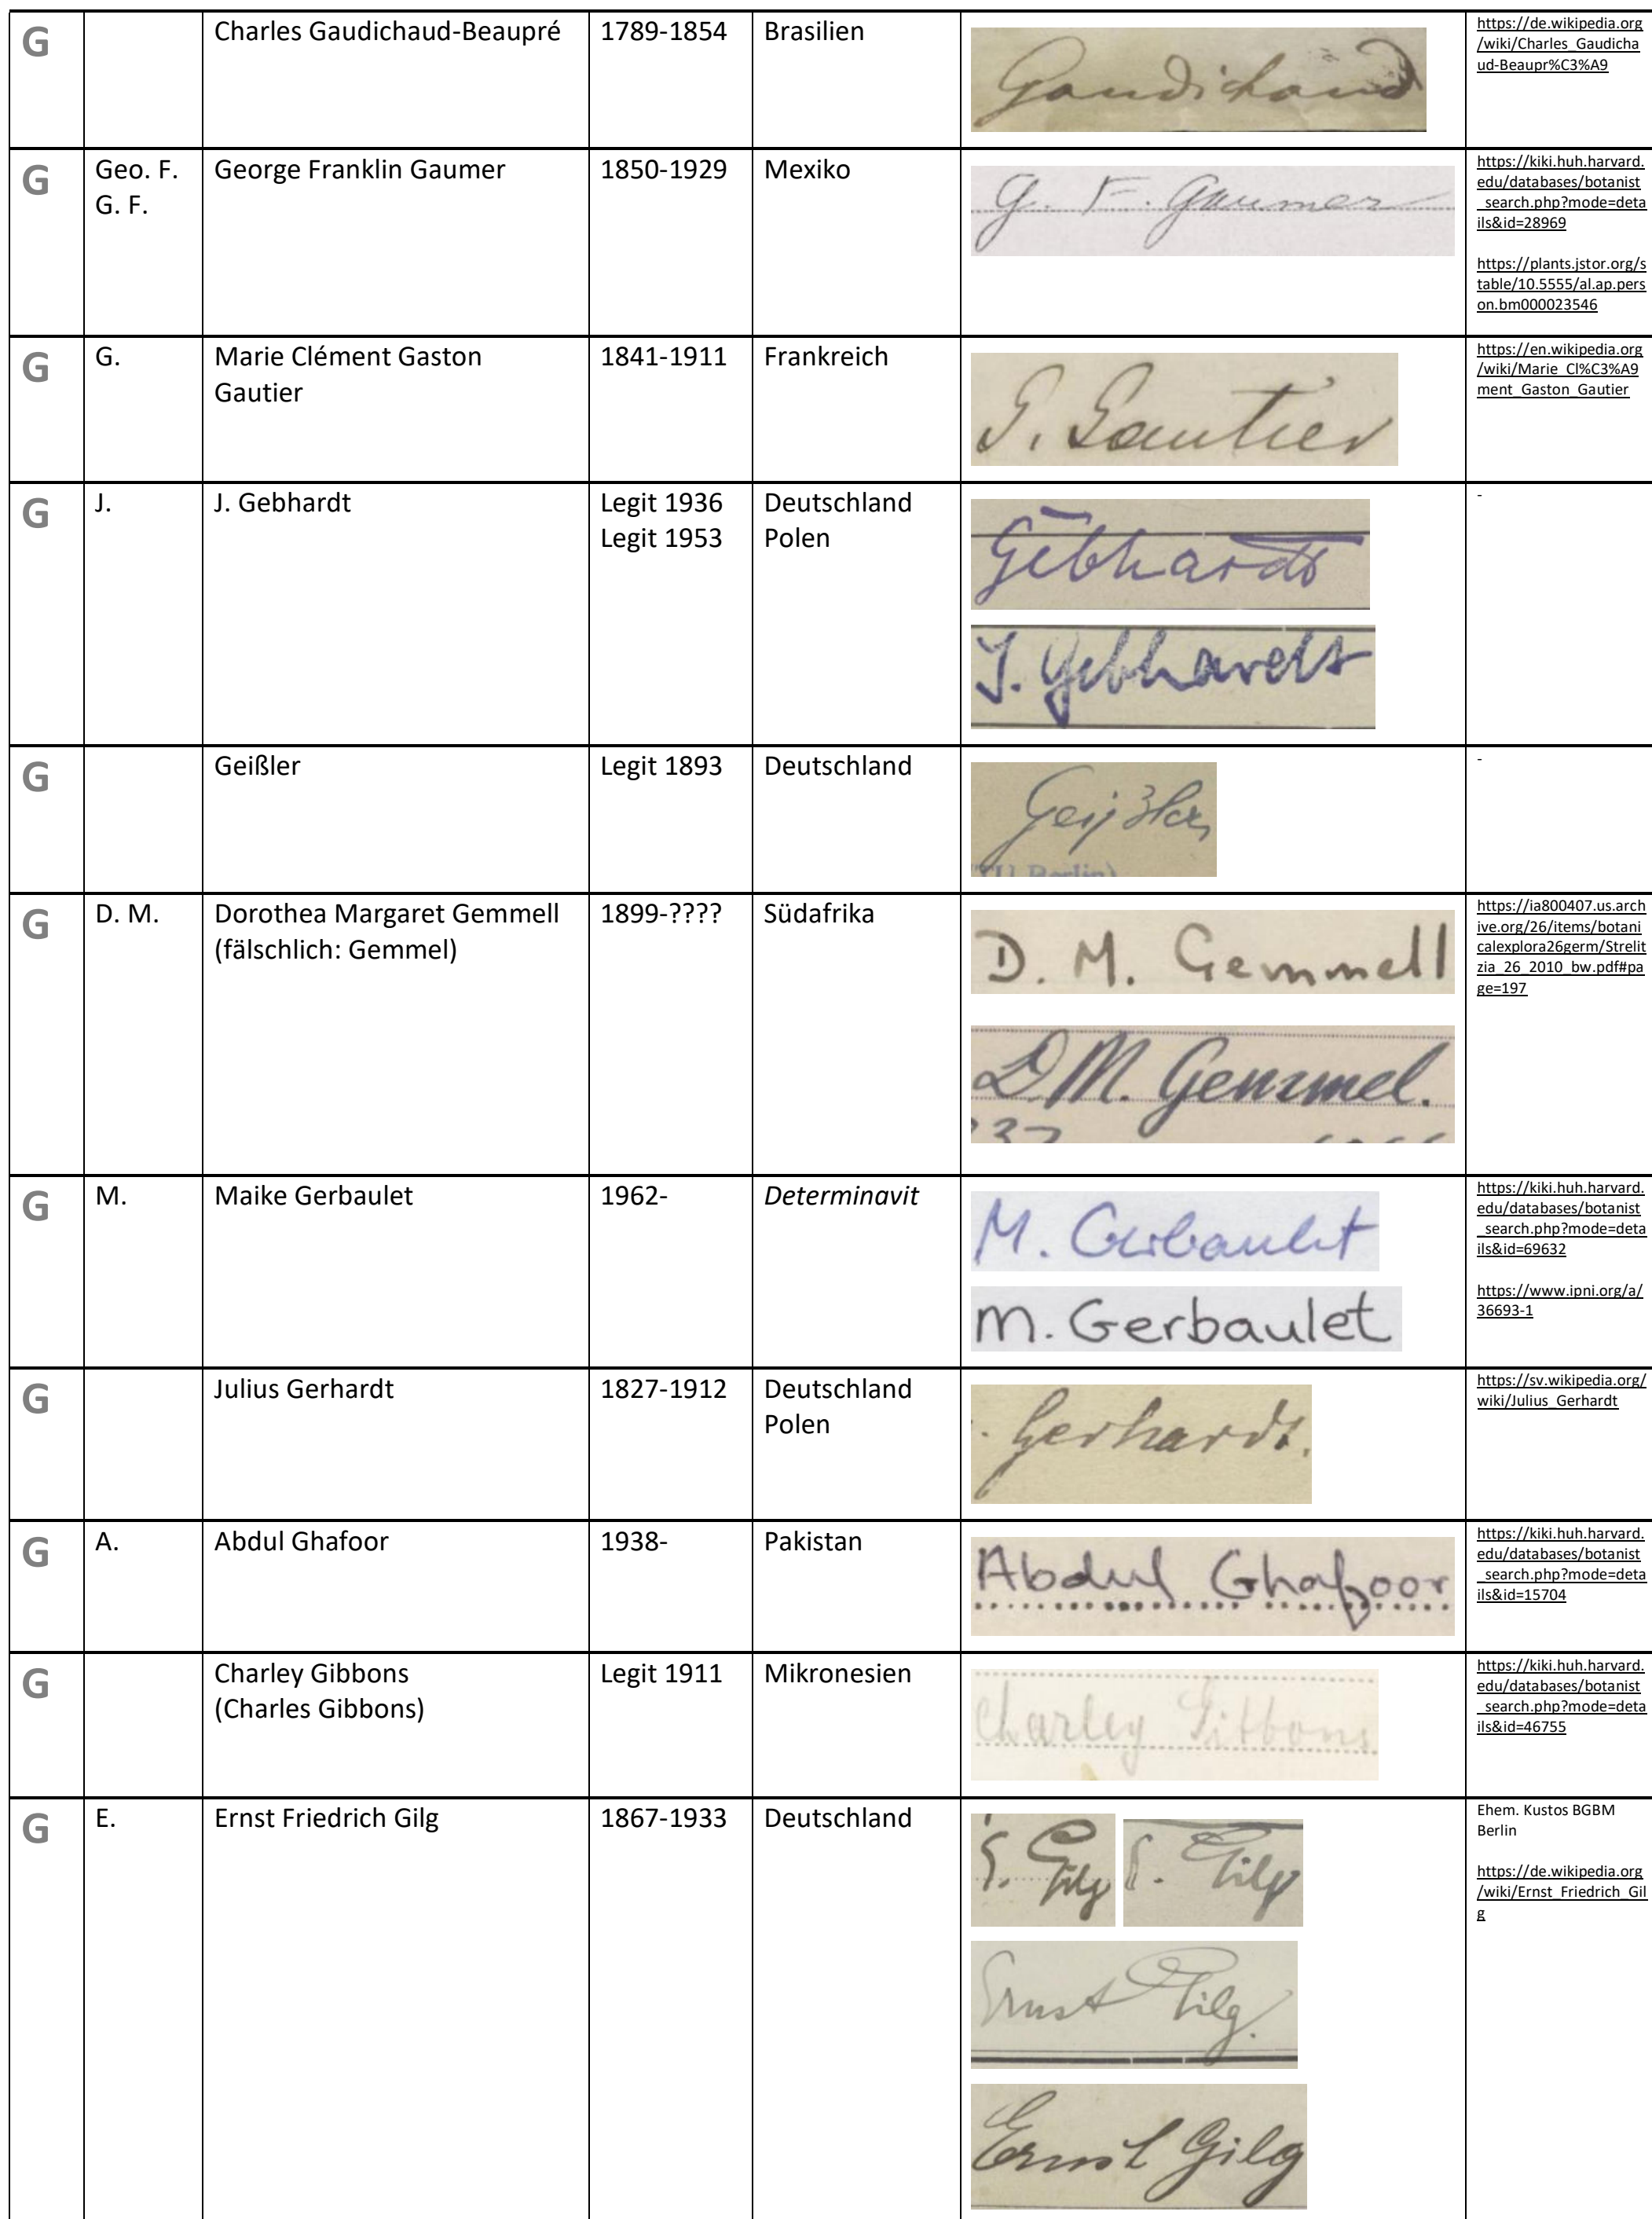 G
Charles Gaudichaud-Beaupré
1789-1854
Brasilien
Gaudichaud
https://de.wikipedia.org
/wiki/Charles_Gaudicha
ud-Beaupr%C3%A9
G
Geo. F.
G. F.
George Franklin Gaumer
1850-1929
Mexiko
G. F. Gaumer
https://kiki.huh.harvard.
edu/databases/botanist
_search.php?mode=deta
ils&id=28969
https://plants.jstor.org/s
table/10.5555/al.ap.pers
on.bm000023546
G
G.
Marie Clément Gaston
Gautier
1841-1911
Frankreich
G. Gautier
https://en.wikipedia.org
/wiki/Marie_Cl%C3%A9
ment_Gaston_Gautier
G
J.
J. Gebhardt
Legit 1936
Legit 1953
Deutschland
Polen
Gebhardt
J. Gebhardt
-
G
Geißler
Legit 1893
Deutschland
Geißler
(TU Berlin)
-
G
D. M.
Dorothea Margaret Gemmell
(fälschlich: Gemmel)
1899-????
Südafrika
D. M. Gemmell
D M. Gemmel.
37
https://ia800407.us.arch
ive.org/26/items/botani
calexplora26germ/Strelit
zia_26_2010_bw.pdf#pa
ge=197
G
M.
Maike Gerbaulet
1962-
Determinavit
M. Gerbaulet
M. Gerbaulet
https://kiki.huh.harvard.
edu/databases/botanist
_search.php?mode=deta
ils&id=69632
https://www.ipni.org/a/
36693-1
G
Julius Gerhardt
1827-1912
Deutschland
Polen
Gerhardt.
https://sv.wikipedia.org/
wiki/Julius_Gerhardt
G
A.
Abdul Ghafoor
1938-
Pakistan
Abdul Ghafoor
https://kiki.huh.harvard.
edu/databases/botanist
_search.php?mode=deta
ils&id=15704
G
Charley Gibbons
(Charles Gibbons)
Legit 1911
Mikronesien
Charley Gibbons
https://kiki.huh.harvard.
edu/databases/botanist
_search.php?mode=deta
ils&id=46755
G
E.
Ernst Friedrich Gilg
1867-1933
Deutschland
E. Gilg
E. Gilg
Ernst Gilg.
Ernst Gilg
Ehem. Kustos BGBM
Berlin
https://de.wikipedia.org
/wiki/Ernst_Friedrich_Gil
g